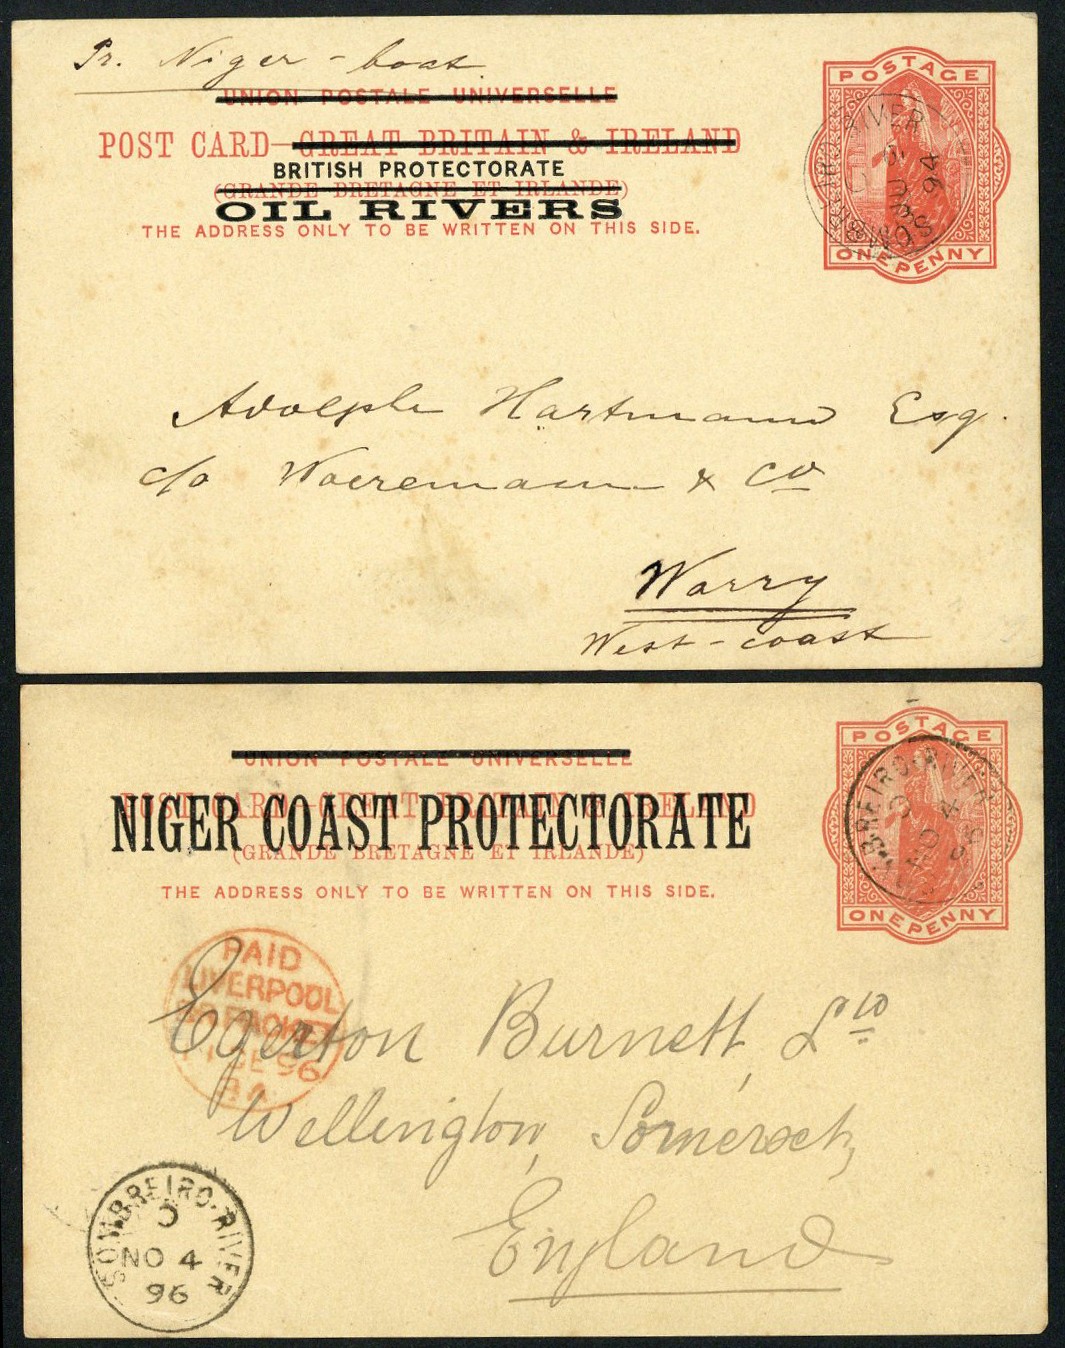 Pr. Niger - boat
UNION POSTALE UNIVERSELLE
POST CARD—GREAT BRITAIN & IRELAND
BRITISH PROTECTORATE
(GRANDE BRETAGNE ET IRLANDE)
OIL RIVERS
THE ADDRESS ONLY TO BE WRITTEN ON THIS SIDE.
POSTAGE
ONE PENNY
SOMBREIRO RIVER
94
Adolphe Hartmann Esq.
c/o Woeremann & Co
Warry
West-coast
UNION POSTALE UNIVERSELLE
POST CARD—GREAT BRITAIN & IRELAND
NIGER COAST PROTECTORATE
(GRANDE BRETAGNE ET IRLANDE)
THE ADDRESS ONLY TO BE WRITTEN ON THIS SIDE.
POSTAGE
ONE PENNY
BREIRO-RIVER
NO 4
96
PAID
LIVERPOOL
BR PACKET
DE 96
Egerton Burnett, Ld
Wellington, Somerset,
England
SOMBREIRO-RIVER
C
NO 4
96